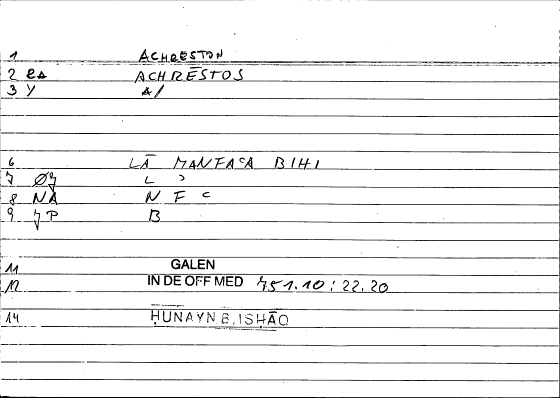 1 ACHRESTON
2 ea ACHRĒSTOS
3 y a/
6 LĀ MANFAʿA BIHI
7 Øy L ʾ
8 NA N F ʿ
9 yP B
11 GALEN
12 IN DE OFF MED 751.10 : 22.20
14 ḤUNAYN B. ISḤĀQ